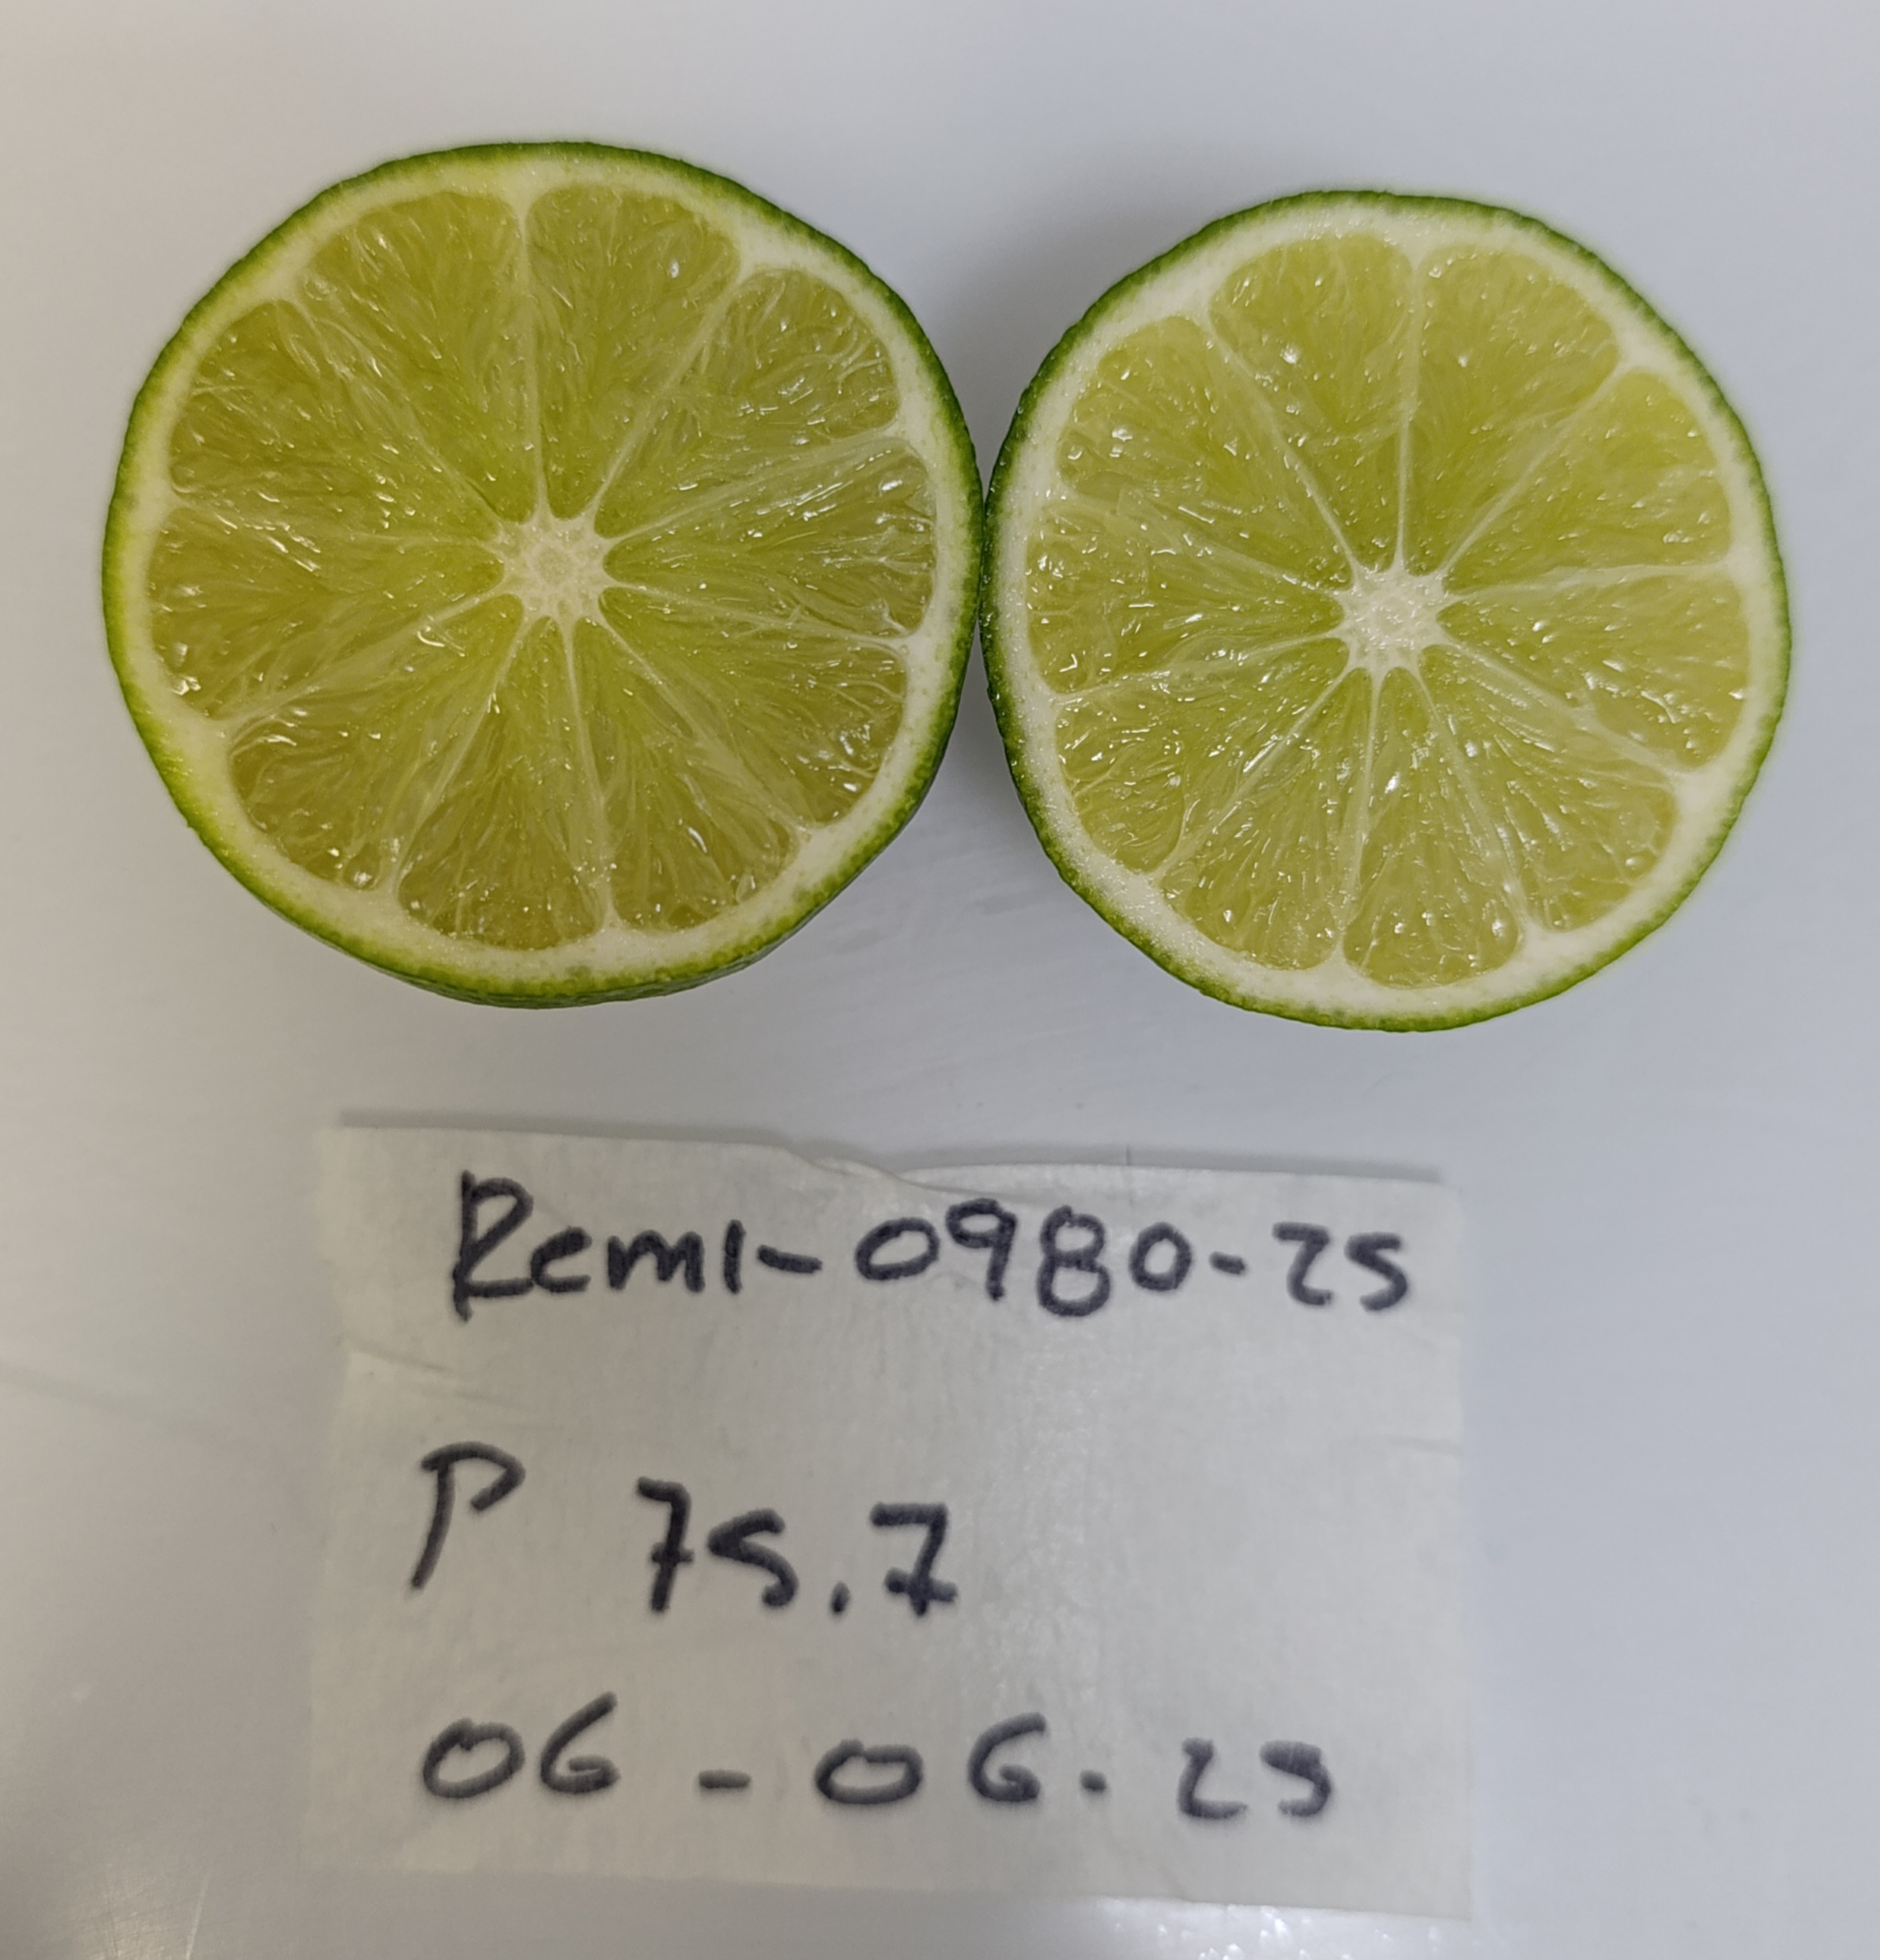 Remi-0980-25
P 75.7
06-06-25